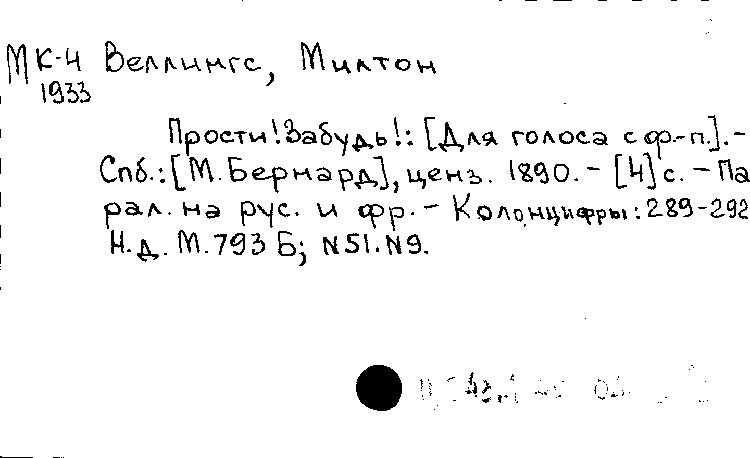 МК-4 Веллингс, Милтон
1933
Прости! Забудь!: [Для голоса с ф.-п.].-
Спб.: [М. Бернард], ценз. 1890. - [4] с. - Па
рал. на рус. и фр. - Колонцифры: 289-292
Н.д. М. 793 Б; N51. N9.